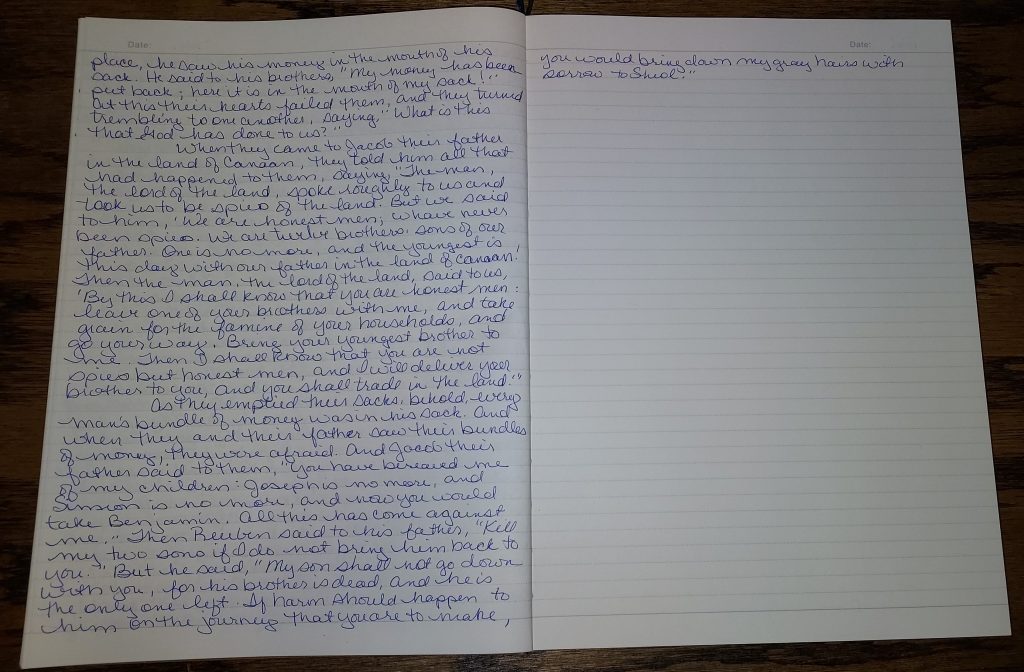 Date:
place, he saw his money in the mouth of his
sack. He said to his brothers, "My money has been
put back; here it is in the mouth of my sack!"
At this their hearts failed them, and they turned
trembling to one another, saying, "What is this
that God has done to us?"
When they came to Jacob their father
in the land of Canaan, they told him all that
had happened to them, saying, "The man,
the lord of the land, spoke roughly to us and
took us to be spies of the land. But we said
to him, 'We are honest men; we have never
been spies. We are twelve brothers, sons of our
father. One is no more, and the youngest is
this day with our father in the land of Canaan.'
Then the man, the lord of the land, said to us,
'By this I shall know that you are honest men:
leave one of your brothers with me, and take
grain for the famine of your households, and
go your way. Bring your youngest brother to
me. Then I shall know that you are not
spies but honest men, and I will deliver your
brother to you, and you shall trade in the land.'"
As they emptied their sacks, behold, every
man's bundle of money was in his sack. And
when they and their father saw their bundles
of money, they were afraid. And Jacob their
father said to them, "You have bereaved me
of my children: Joseph is no more, and
Simeon is no more, and now you would
take Benjamin. All this has come against
me." Then Reuben said to his father, "Kill
my two sons if I do not bring him back to
you." But he said, "My son shall not go down
with you, for his brother is dead, and he is
the only one left. If harm should happen to
him on the journey that you are to make,
Date:
you would bring down my gray hairs with
sorrow to Sheol."